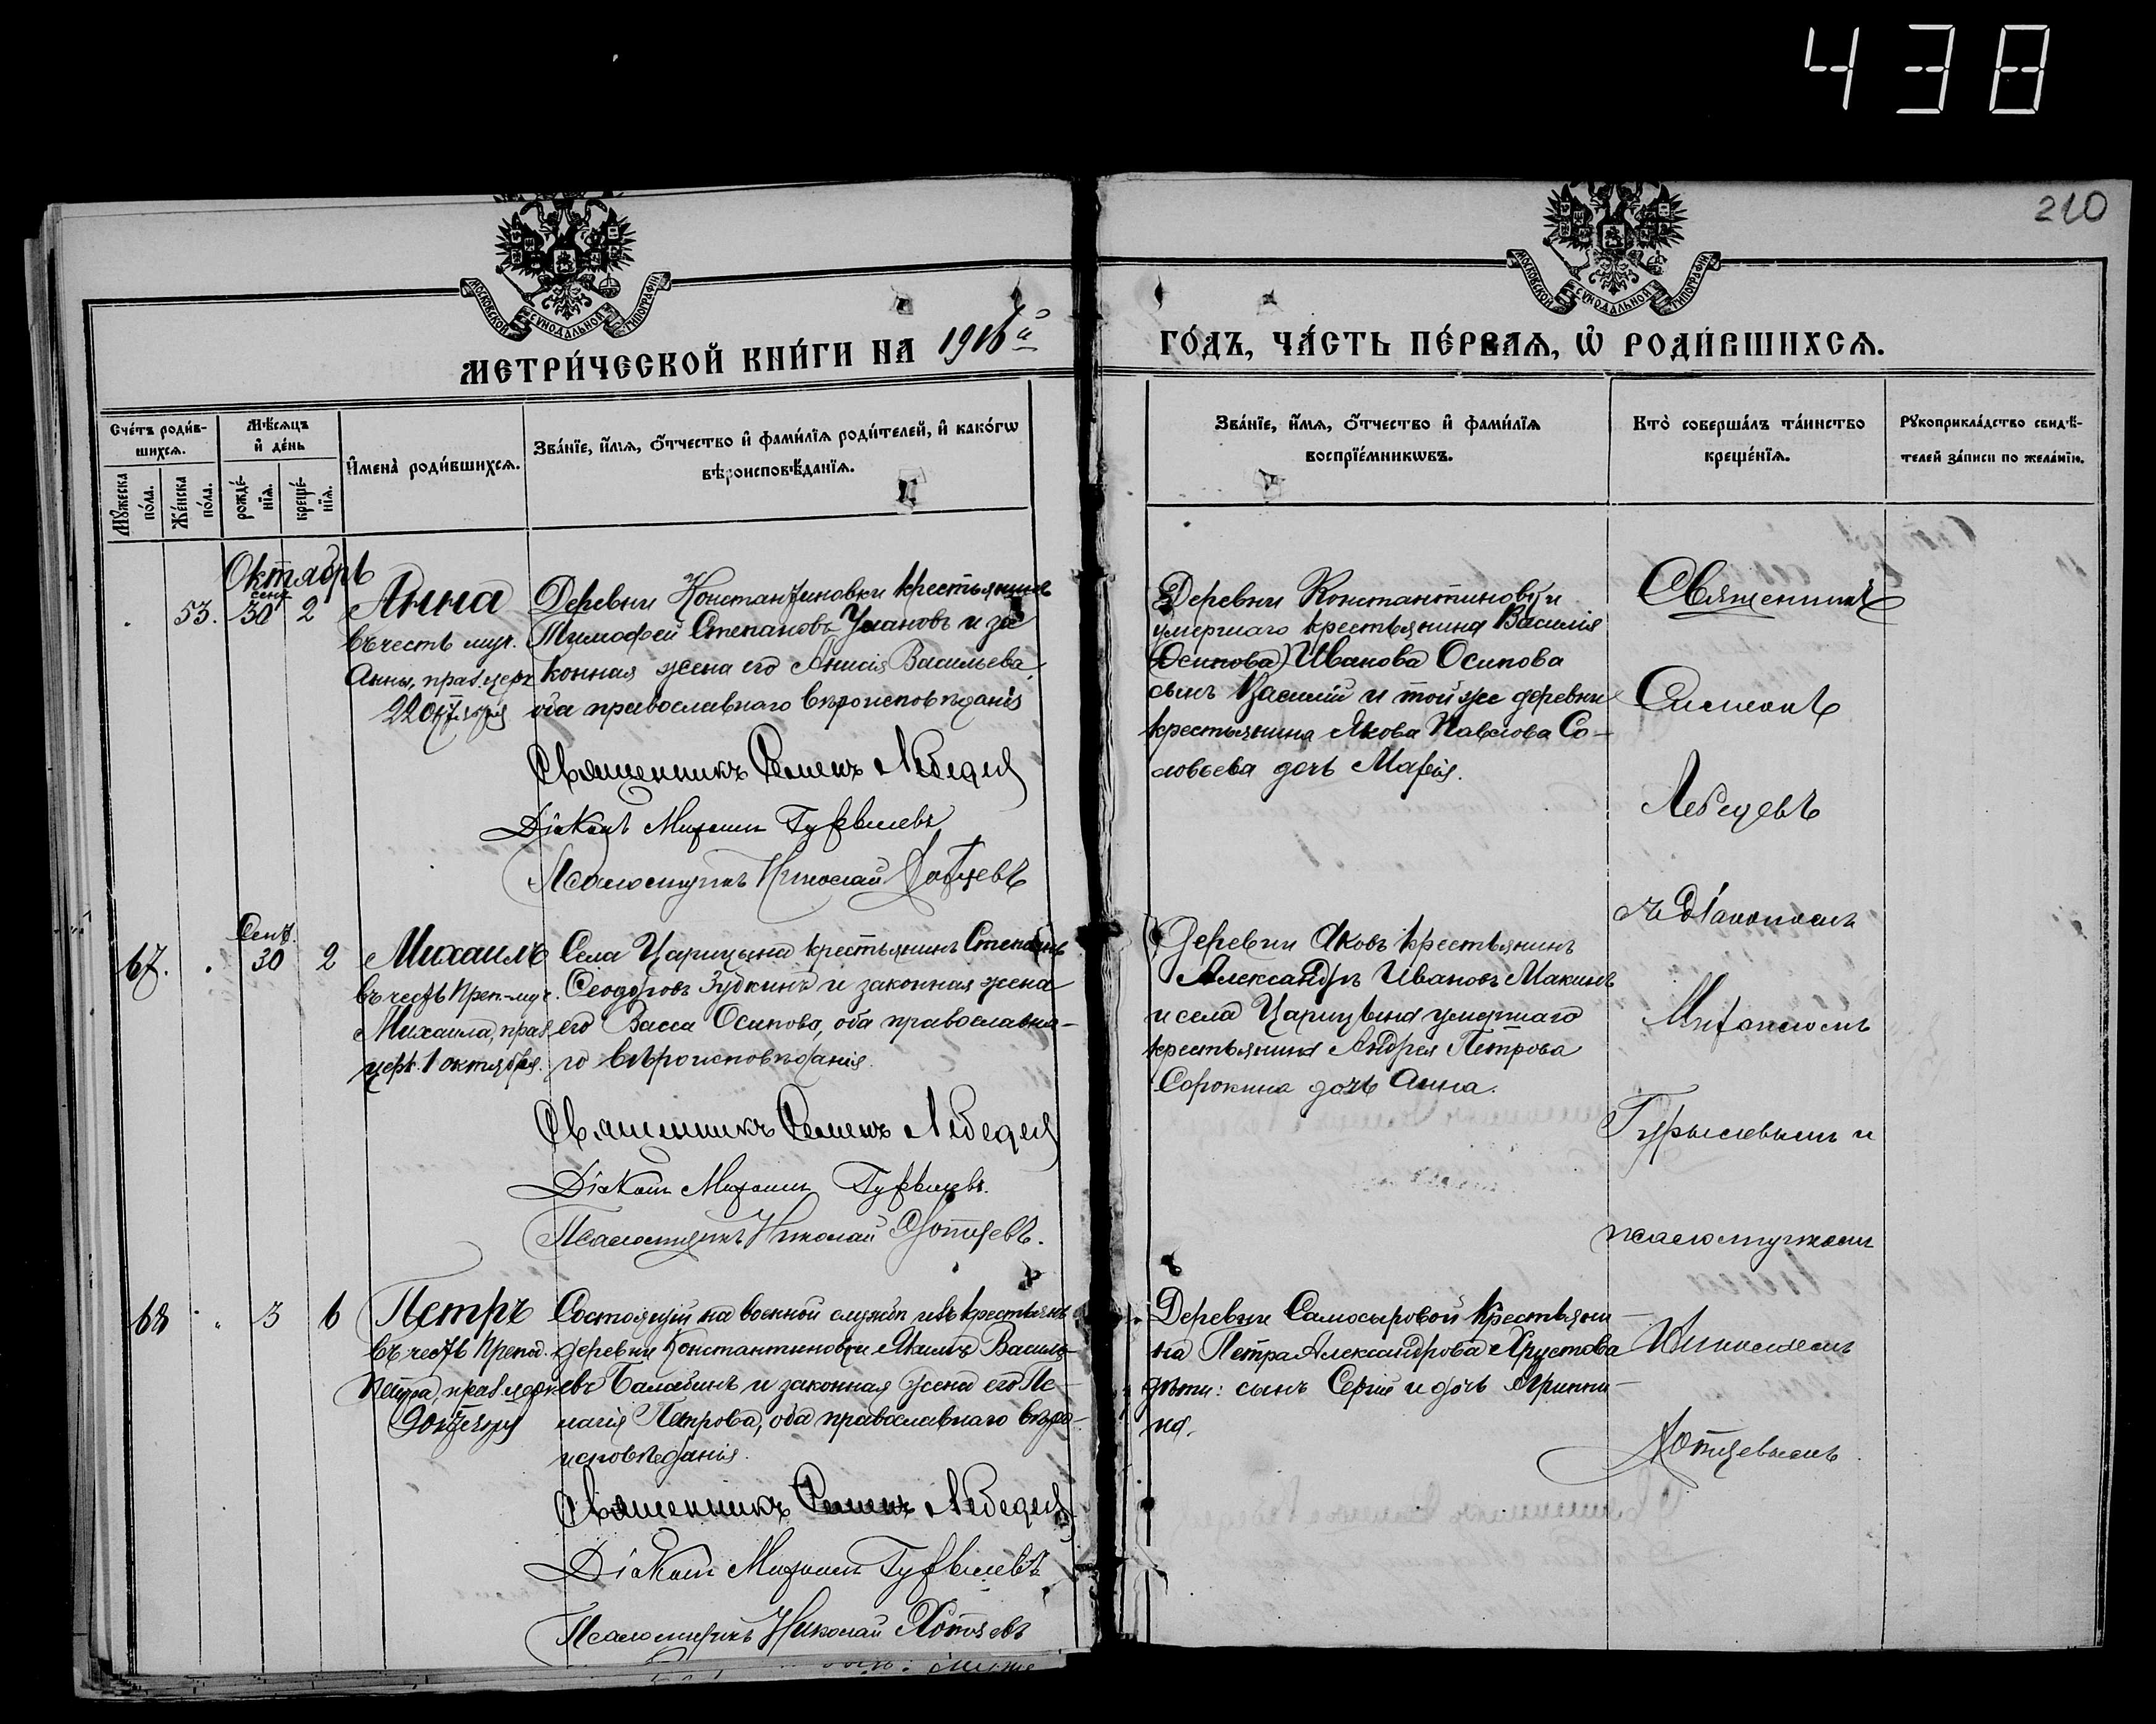 438
210
МОСКОВСКОЙ СѴНОДАЛЬНОЙ ТИПОГРАФІИ
МОСКОВСКОЙ СѴНОДАЛЬНОЙ ТИПОГРАФІИ
МЕТРИ́ЧЕСКОЙ КНИ́ГИ НА 1916й
ГО́ДЪ, ЧА́СТЬ ПЕ́РВАѦ, Ѡ҆ РОДИ́ВШИХСѦ.
Сче́тъ роди́вшихсѧ.
Мꙋ́жеска по́ла.
Же́нска по́ла.
Мѣ́сѧцъ и҆ де́нь
рожде́нїѧ.
креще́нїѧ.
И҆мена̀ роди́вшихсѧ.
Зва́нїе, и҆́мѧ, ѻ҆́тчество и҆ фами́лїѧ роди́телей, и҆ како́гѡ
вѣроисповѣ́данїѧ.
Зва́нїе, и҆́мѧ, ѻ҆́тчество и҆ фами́лїѧ
воспрїе́мникѡвъ.
Кто̀ соверша́лъ та́инство
креще́нїѧ.
Рꙋкоприкла́дство свидѣ́-
телей за́писи по жела́нїю.
Октябрь
53. сент. 30 2
Анна
въ честь муч.
Анны, праз. церк.
22 октября
Деревни Константиновки крестьянинъ
Тимофей Степановъ Улановъ и за
конная жена его Анисія Васильева,
оба православнаго вѣроисповѣданія
Священникъ Семенъ Лебедев
Діаконъ Михаил Гурылевъ
Псаломщикъ Николай Хотцевъ
Деревни Константиновки
умершаго крестьянина Василія
(Осипова) Иванова Осипова
сынъ Василій и той же деревни
крестьянина Якова Павлова Со-
ловьева дочь Марія.
Священникъ
Симеонъ
Лебедевъ
съ діакономъ
Гурылевымъ и
псаломщикомъ
Николаемъ
Хотцевымъ
67. Сент. 30 2
Михаилъ
въ честь Преп.-муч.
Михаила, праз.
церк. 1 октября.
Села Царицына крестьянинъ Степанъ
Ѳеодоровъ Зубкинъ и законная жена
его Васса Осипова, оба православна-
го вѣроисповѣданія.
Священникъ Семенъ Лебедев
Діаконъ Михаил Гурылевъ.
Псаломщикъ Николай Хотцевъ.
Деревни Яковъ крестьянинъ
Александръ Ивановъ Макинъ
и села Царицына умершаго
крестьянина Андрея Петрова
Сорокина дочь Анна.
68 3 6
Петръ
въ честь Препод.
Петра, праз. церк.
9 октября
Состоящій на военной службѣ изъ крестьянъ
деревни Константиновки Якимъ Василь-
евъ Балабинъ и законная жена его Пе-
лагія Петрова, оба православнаго вѣро-
исповѣданія.
Священникъ Семенъ Лебедев
Діаконъ Михаил Гурылевъ
Псаломщикъ Николай Хотцевъ
Деревни Самосыровой крестьяни-
на Петра Александрова Хрустова
дѣти: сынъ Сергій и дочь Агрипи-
на.